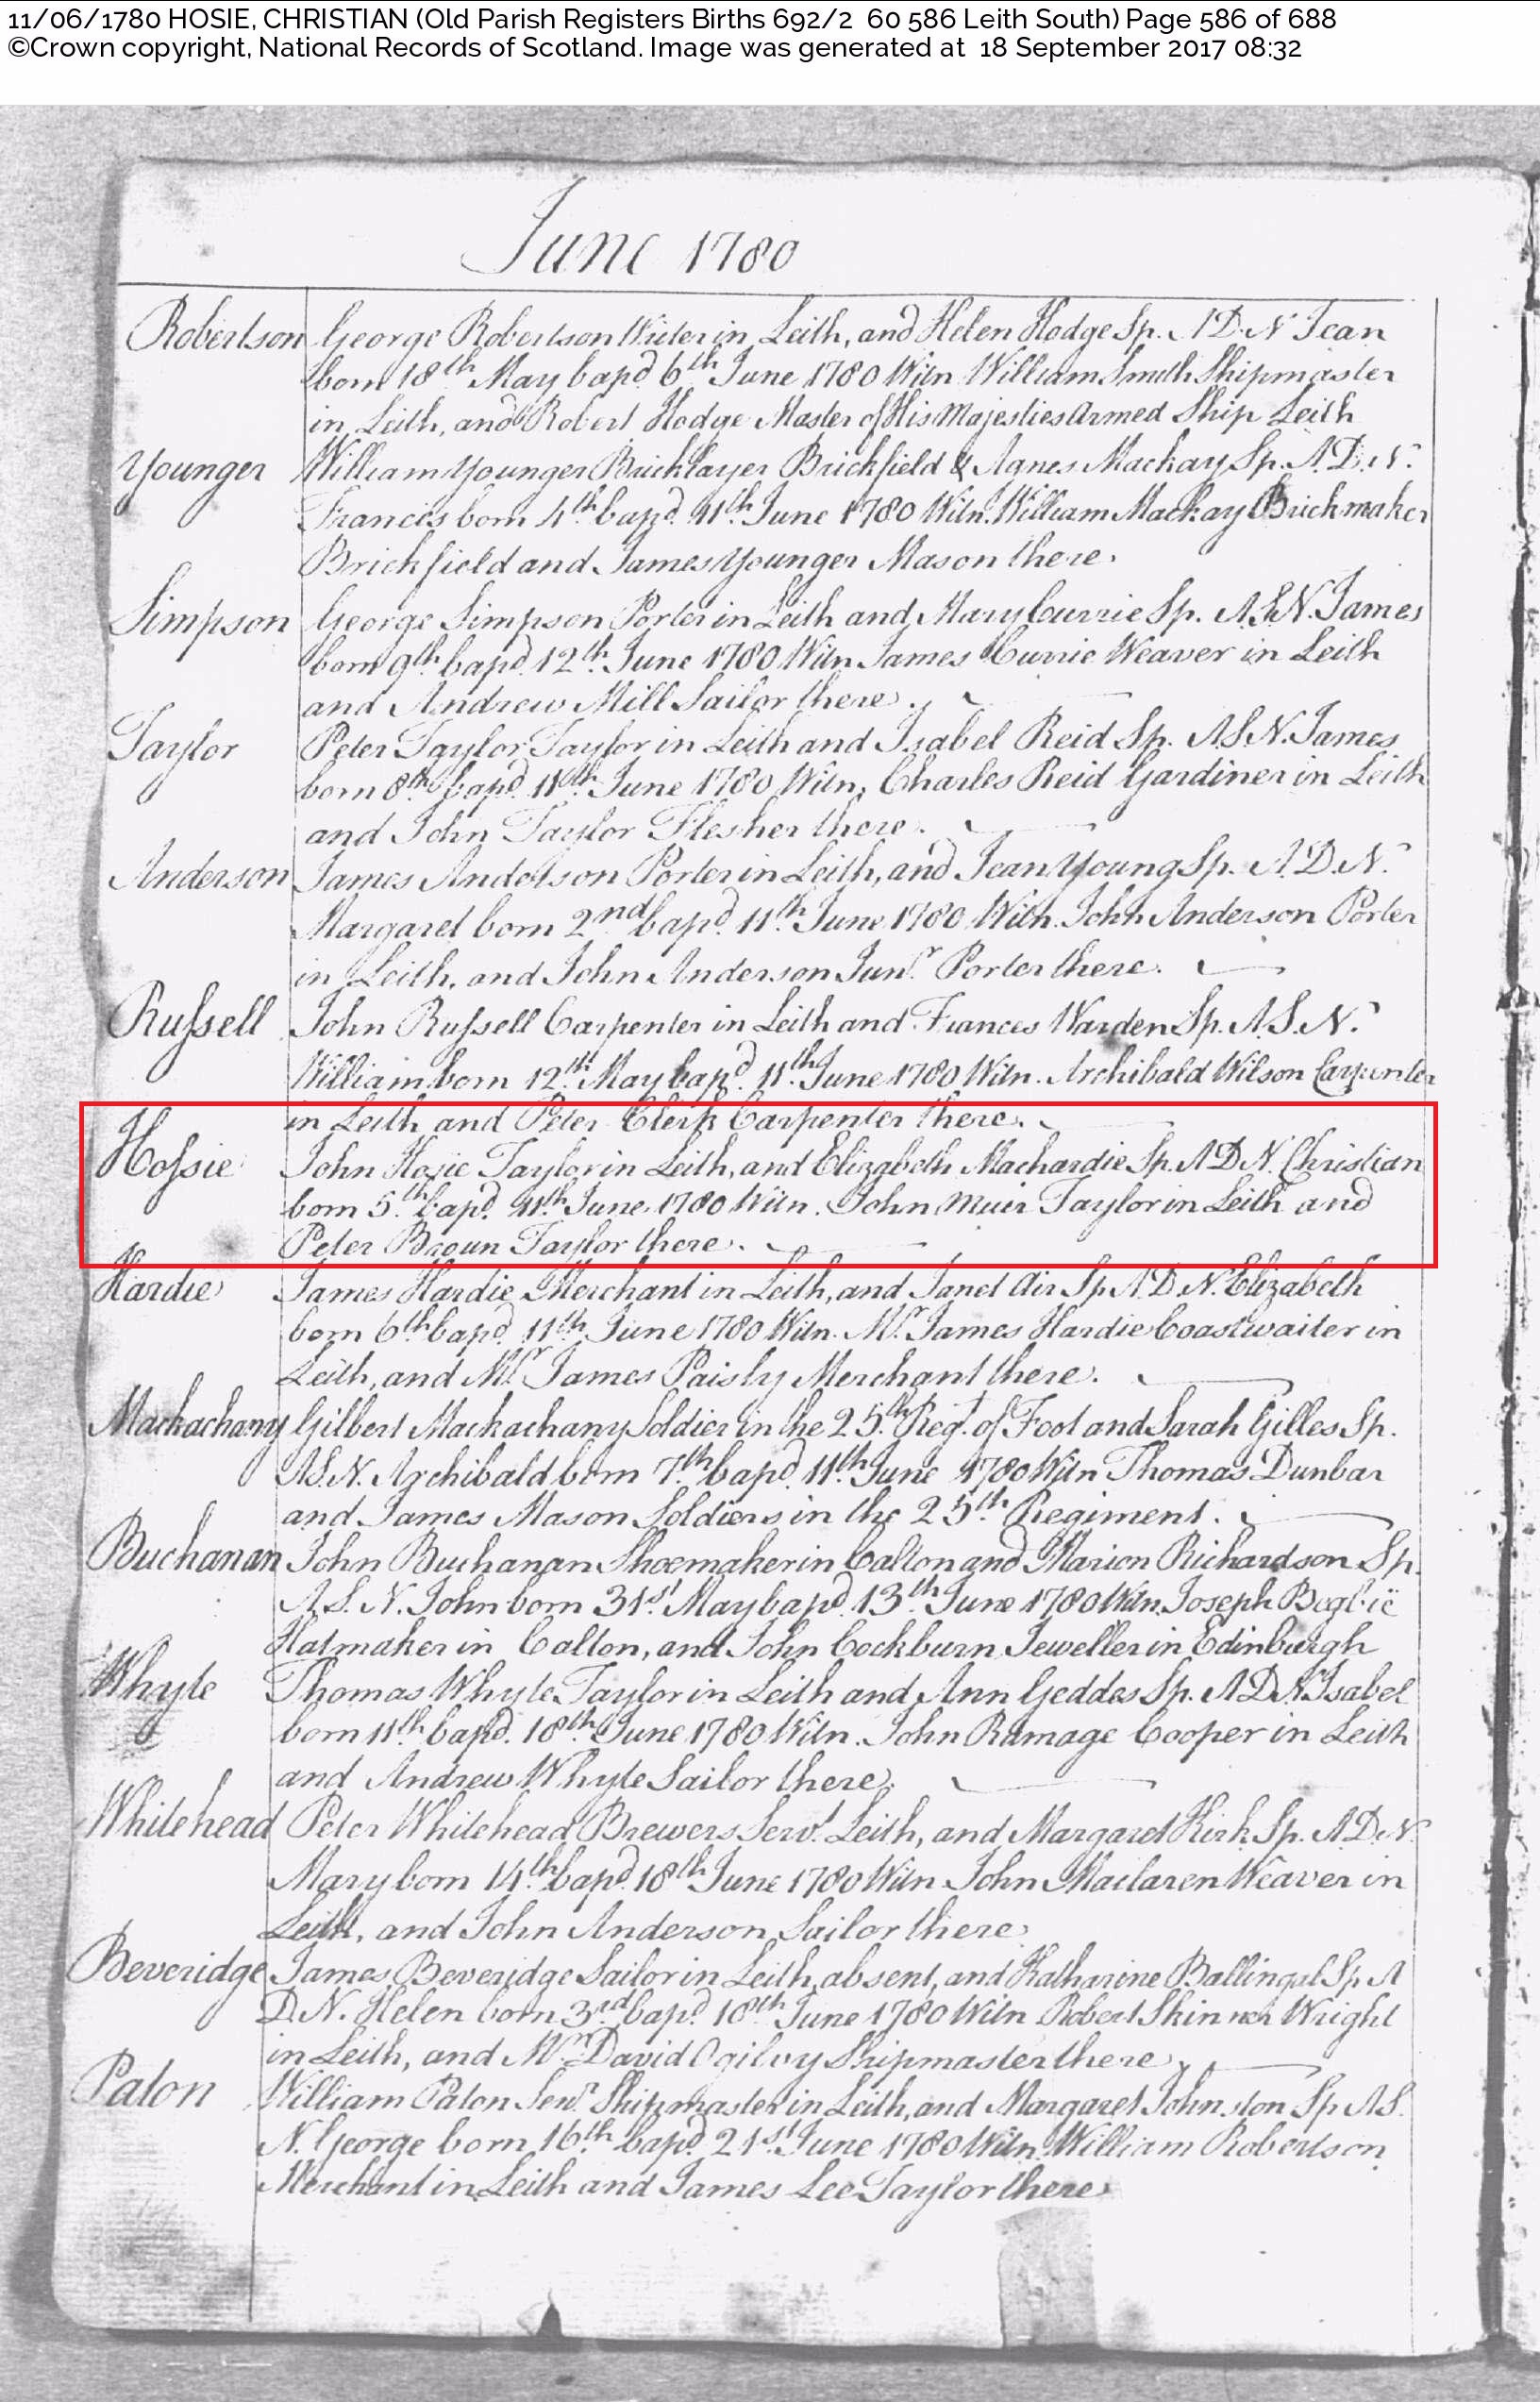 11/06/1780 HOSIE, CHRISTIAN (Old Parish Registers Births 692/2 60 586 Leith South) Page 586 of 688
©Crown copyright, National Records of Scotland. Image was generated at 18 September 2017 08:32
June 1780
Robertson George Robertson Writer in Leith, and Helen Hodge Sp. A D. N Jean
born 18th May bapd 6th June 1780 Witn William Smith Shipmaster
in Leith, and Robert Hodge Master of His Majesties Armed Ship Leith
Younger William Younger Bricklayer Brickfield & Agnes Mackay Sp. A. D. N.
Francis born 4th bapd. 11th June 1780 Witn. William Mackay Brickmaker
Brickfield and James Younger Mason there.
Simpson George Simpson Porter in Leith and Mary Currie Sp. A. S. N. James
born 9th bapd. 12th June 1780 Witn James Currie Weaver in Leith
and Andrew Mill Sailor there.
Taylor Peter Taylor Taylor in Leith and Isabel Reid Sp. A. S. N. James
born 8th bapd. 11th June 1780 Witn. Charles Reid Gardiner in Leith
and John Taylor Flesher there.
Anderson James Anderson Porter in Leith, and Jean Young Sp. A. D. N.
Margaret born 2nd bapd. 11th June 1780 Witn. John Anderson Porter
in Leith, and John Anderson Junr. Porter there.
Rufsell John Rufsell Carpenter in Leith and Frances Warden Sp. A. S. N.
William born 12th May bapd. 11th June 1780 Witn. Archibald Wilson Carpenter
in Leith and Peter Clerk Carpenter there.
Hofsie John Hosie Taylor in Leith, and Elizabeth Machardie Sp. A D N. Christian
born 5th bapd. 11th June 1780 Witn. John Muir Taylor in Leith and
Peter Broun Taylor there.
Hardie James Hardie Merchant in Leith, and Janet Air Sp A. D. N. Elizabeth
born 6th bapd. 11th June 1780 Witn. Mr. James Hardie Coastwaiter in
Leith, and Mr. James Paisly Merchant there.
Mackachany Gilbert Mackachany Soldier in the 25th Regt. of Foot and Sarah Gilles Sp.
A. S. N. Archibald born 7th bapd. 11th June 1780 Witn Thomas Dunbar
and James Mason Soldiers in the 25th Regiment.
Buchanan John Buchanan Shoemaker in Calton and Marion Richardson Sp.
A. S. N. John born 31st May bapd. 13th June 1780 Witn. Joseph Begbie
Hatmaker in Calton, and John Cockburn Jeweller in Edinburgh
Whyte Thomas Whyte Taylor in Leith and Ann Geddes Sp. A D N. Isabel
born 11th bapd. 18th June 1780 Witn. John Ramage Cooper in Leith
and Andrew Whyte Sailor there.
Whitehead Peter Whitehead Brewers Servt. Leith, and Margaret Kirk Sp. A D. N.
Mary born 14th bapd. 18th June 1780 Witn John Maclaren Weaver in
Leith, and John Anderson Sailor there
Beveridge James Beveridge Sailor in Leith absent, and Katharine Ballingal Sp A
D. N. Helen born 3rd bapd 18th June 1780 Witn Robert Skinner Wright
in Leith, and Mr. David Ogilvy Shipmaster there
Paton William Paton Senr. Shipmaster in Leith, and Margaret Johnston Sp A S.
N. George born 16th bapd. 21st June 1780 Witn. William Robertson
Merchant in Leith and James Lee Taylor there